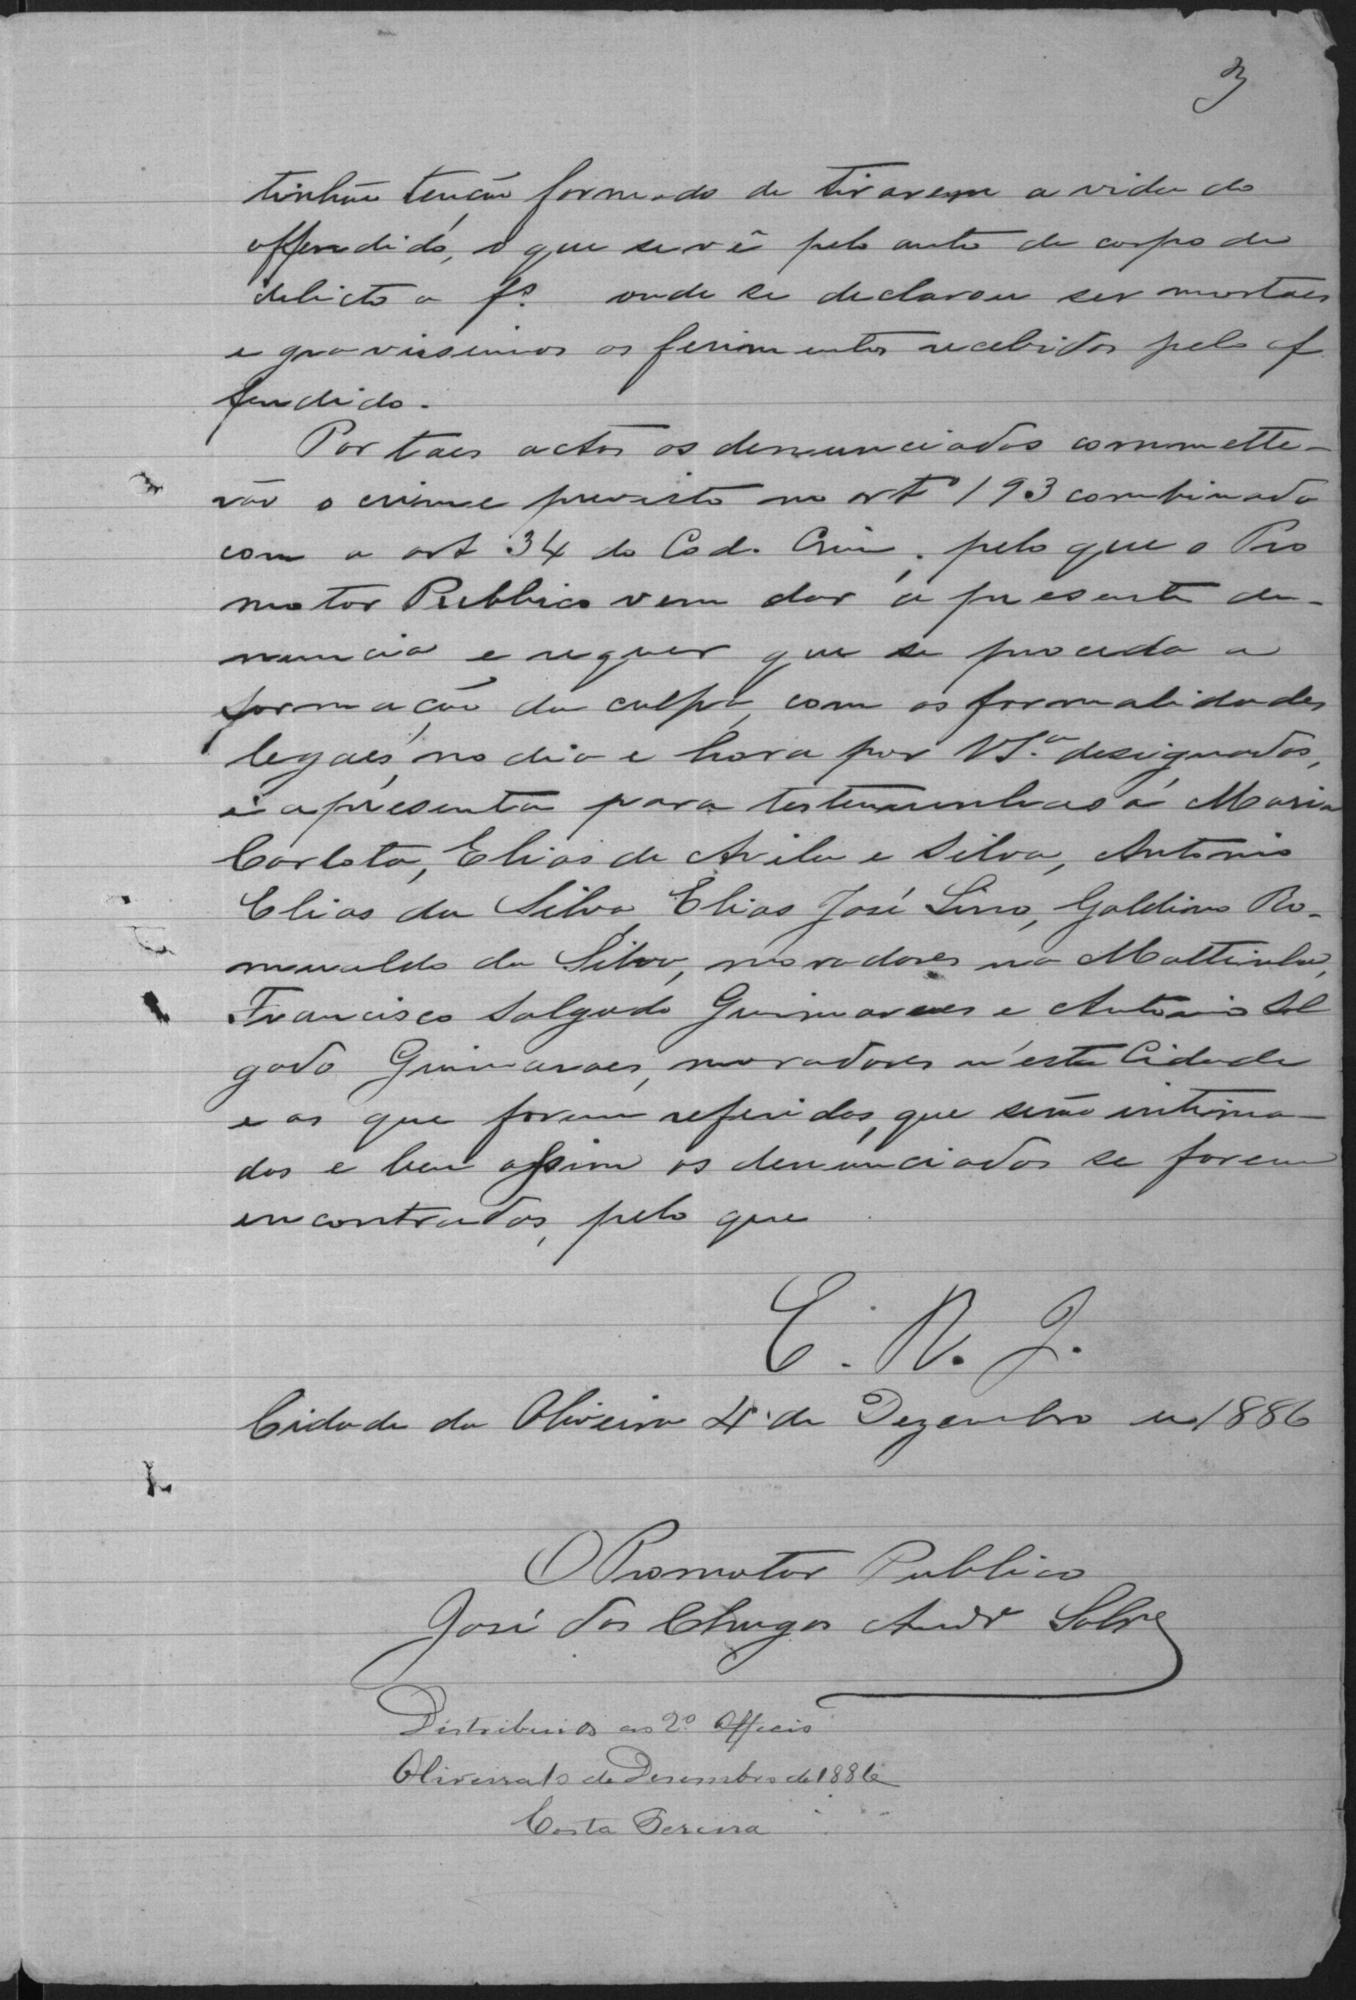 3
tinhão tenção formada de tirarem a vida do
offendido, o que se vê pelo auto de corpo de
delicto a fs. onde se declarou ser mortaes
e gravissimos os ferimentos recebidos pelo of
fendido.
Por taes actos os denunciados commette-
rão o crime previsto no artº 193 combinado
com o art 34 do Cod. Crim, pelo que o Pro
motor Publico vem dar a presente de-
nuncia e requer que se proceda a
formação da culpa, com as formalidades
legaes, no dia e hora por VSª designados,
e apresenta para testemunhas a Maria
Carlota, Elias de Avila e Silva, Antonio
Elias da Silva, Elias José Lino, Galdino Ro-
mualdo da Silva, moradores na Mattinha,
Francisco Salgado Guimaraes e Antonio Sal
gado Guimaraes, moradores n'esta Cidade
e os que forem referidos, que serão intima-
dos e bem assim os denunciados se forem
encontrados, pelo que
E. R. J.
Cidade da Oliveira 4 de Dezembro de 1886
O Promotor Publico
José das Chagas Andr Sobrº
Distribuido ao 2º Officio
Oliveira de Desembro de 1886
Costa Pereira